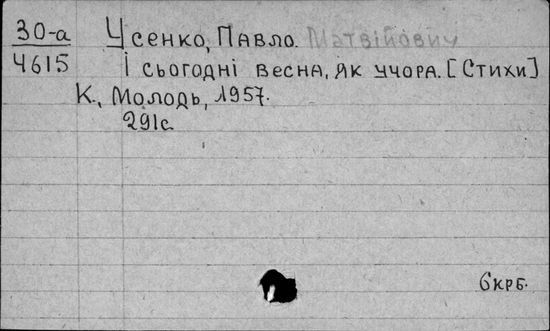 30-а
4615
Усенко, Павло. Матвійович
І сьогодні весна, як учора. [Стихи]
К., Молодь, 1957.
291с.
6крб.